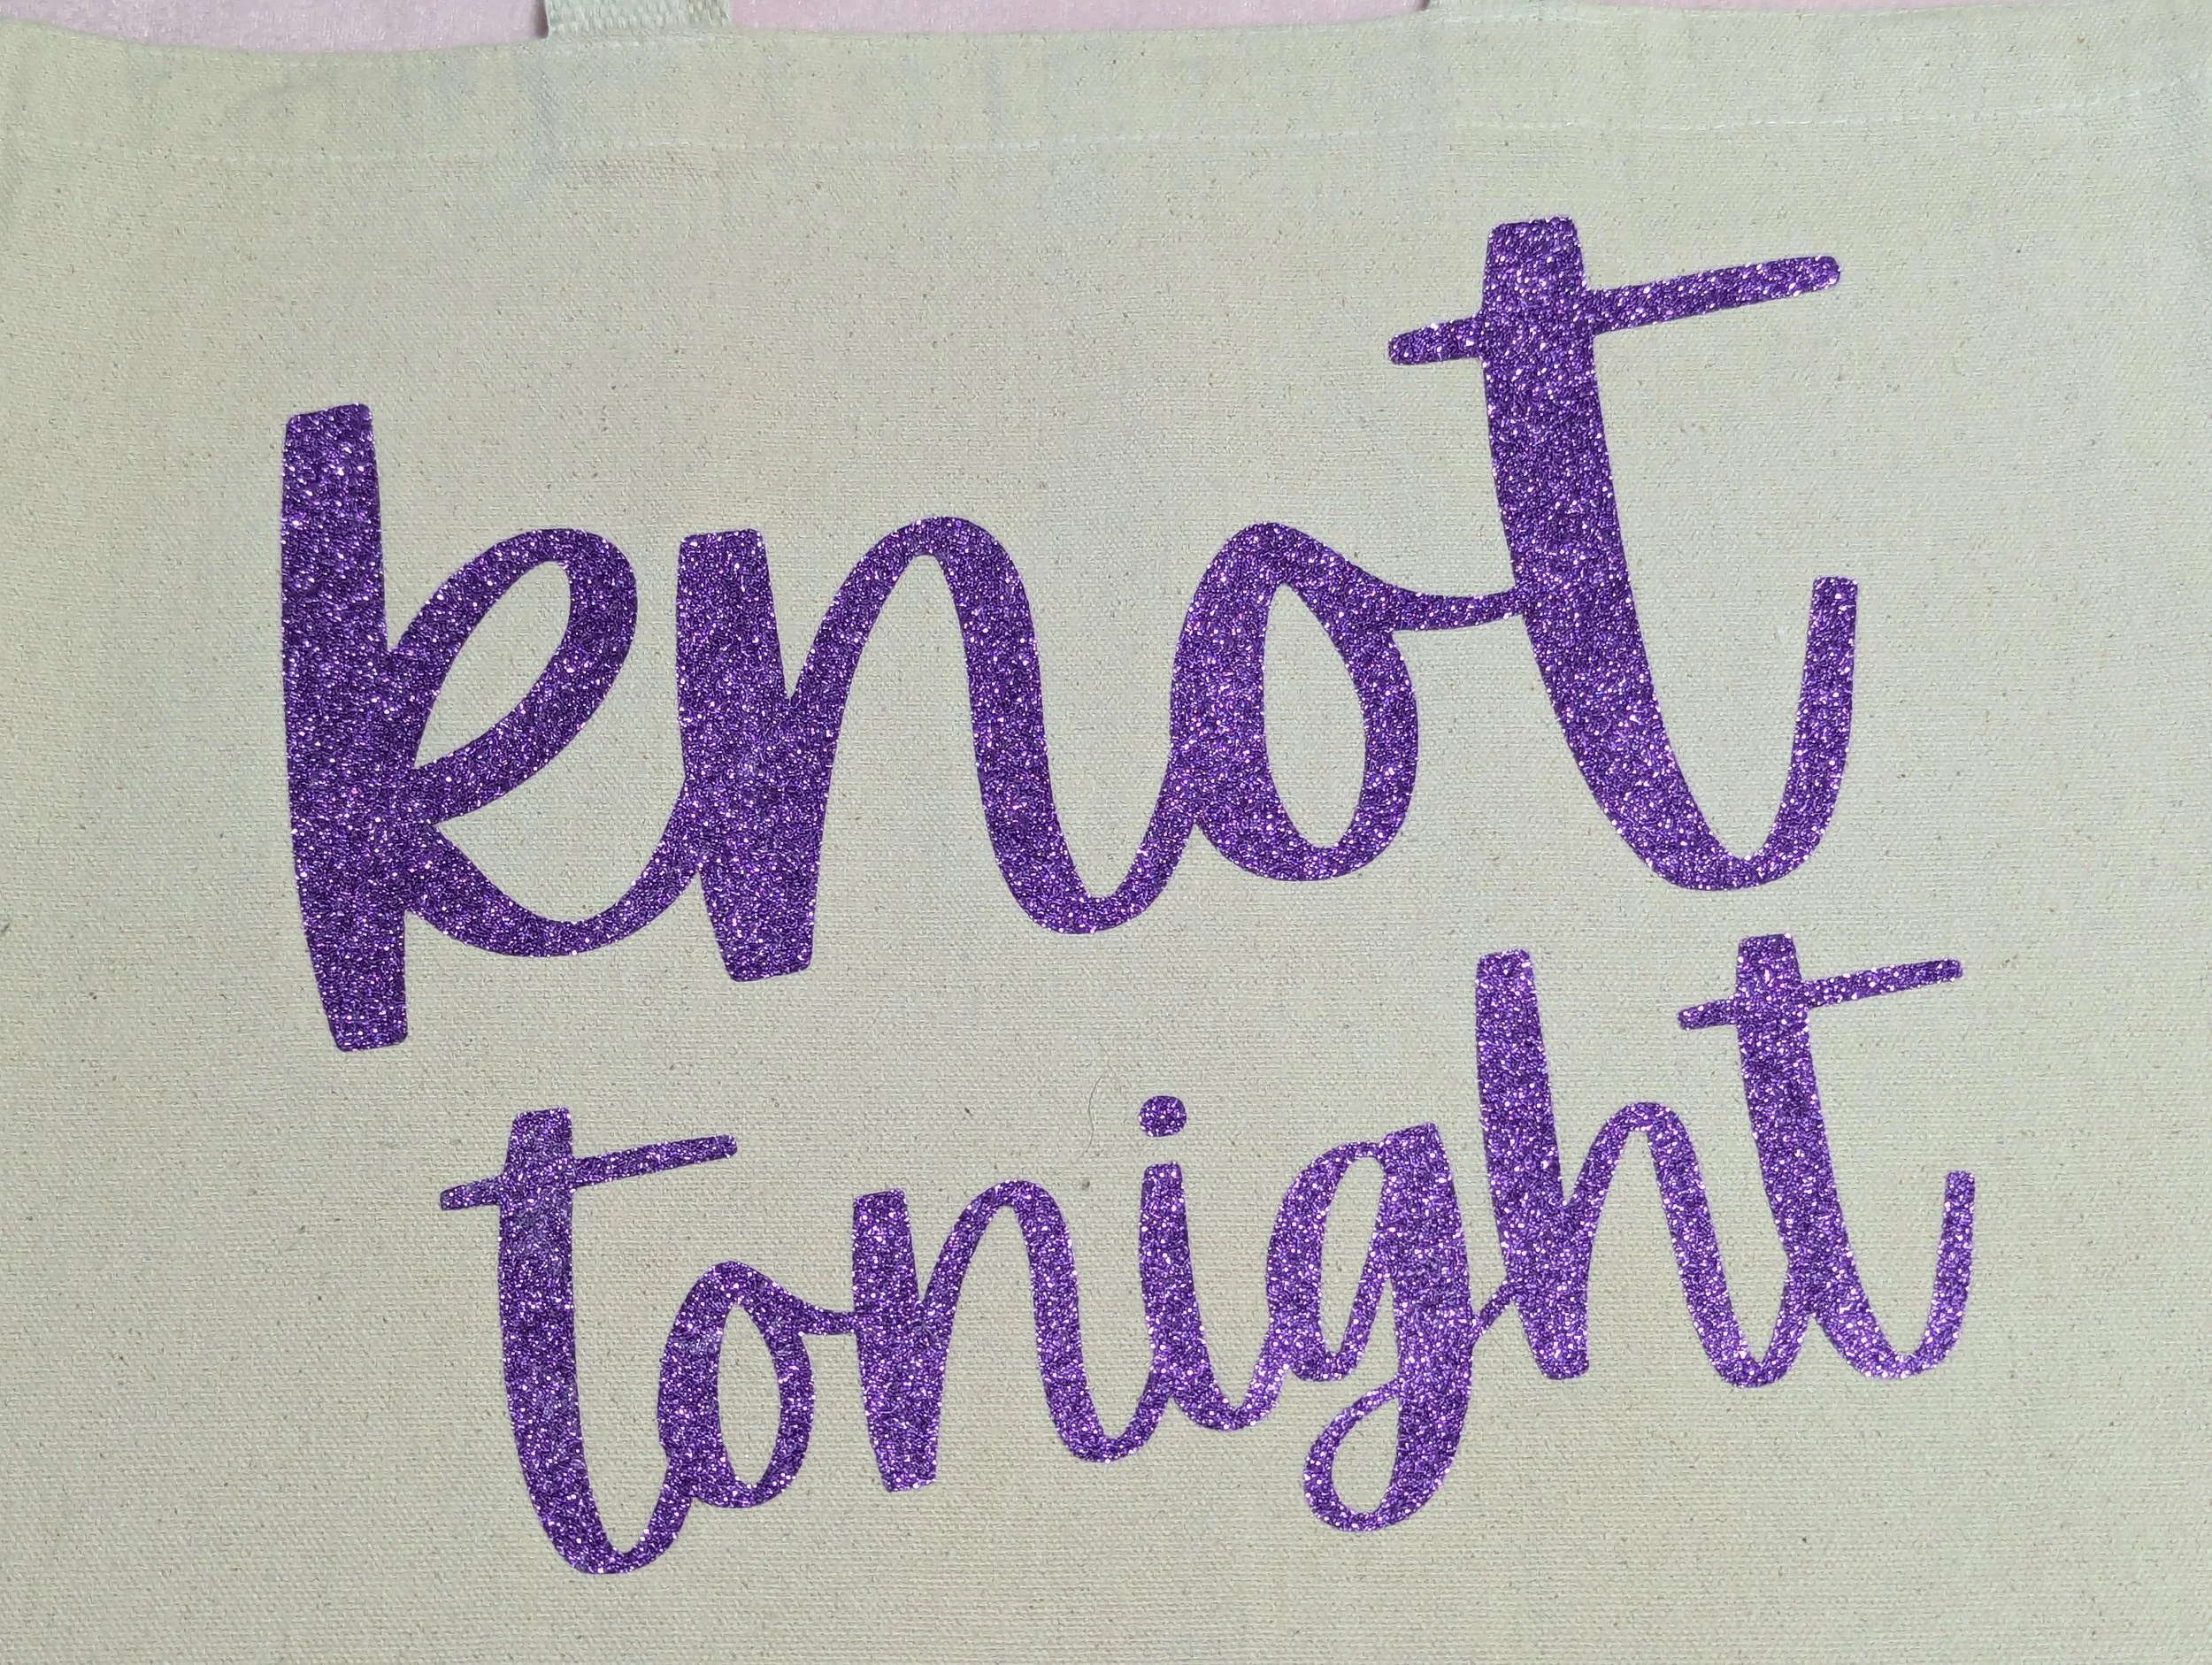 knot
tonight